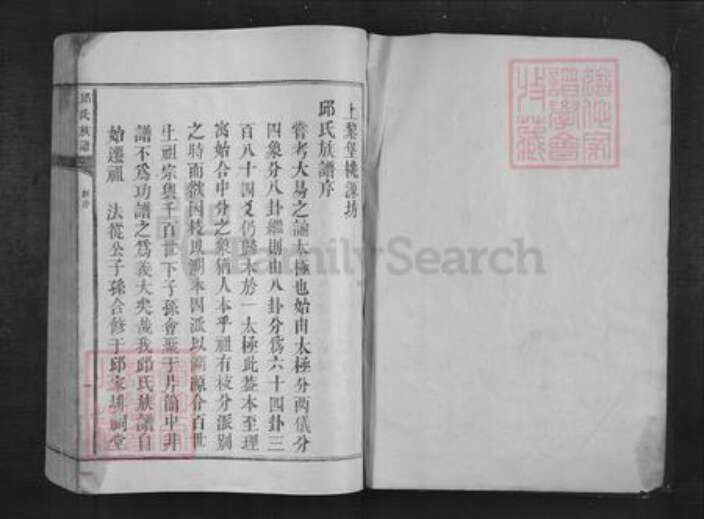 上黎堡桃源坊
邱氏族譜序
嘗考大易之論太極也始由太極分兩儀分
四象分八卦繼則由八卦分為六十四卦三
百八十四爻仍歸本於一太極此蓋本至理
寓始合中分之象猶人本乎祖有枝分派別
之時而欲因枝以溯本因派以溯源合百世
上祖宗與千百世下子孫會聚于片簡中非
譜不為功譜之為義大矣哉我邱氏族譜自
始遷祖 法從公子孫合修于邱家排祠堂
邱氏族譜
FamilySearch